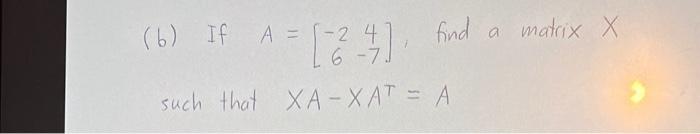 (b) If A = [-2 4
6 -7], find a matrix X
such that XA - XAᵀ = A